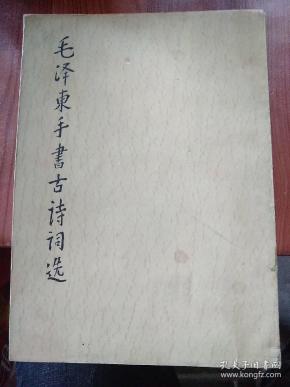 毛泽東手書古詩詞选
孔夫子旧书网
www.kongfz.com